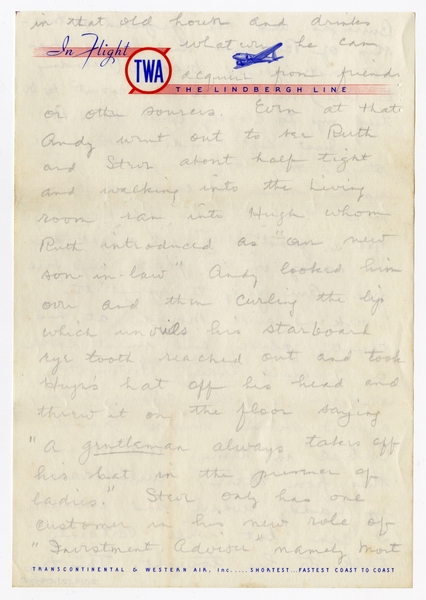 in that old house and drinks
In Flight whatever he can
TWA acquire from friends
THE LINDBERGH LINE
or other sources. Even at that
Andy went out to see Ruth
and Steve about half tight
and walking into the living
room ran into Hugh whom
Ruth introduced as "our new
son-in-law" Andy looked him
over and then curling the lip
which unveils his starboard
eye tooth reached out and took
Hughs hat off his head and
threw it on the floor saying
"A gentleman always takes off
his hat in the presence of
ladies." Steve only has one
customer in his new role of
"Investment Advisor" namely Mort
TRANSCONTINENTAL & WESTERN AIR, Inc..... SHORTEST...FASTEST COAST TO COAST